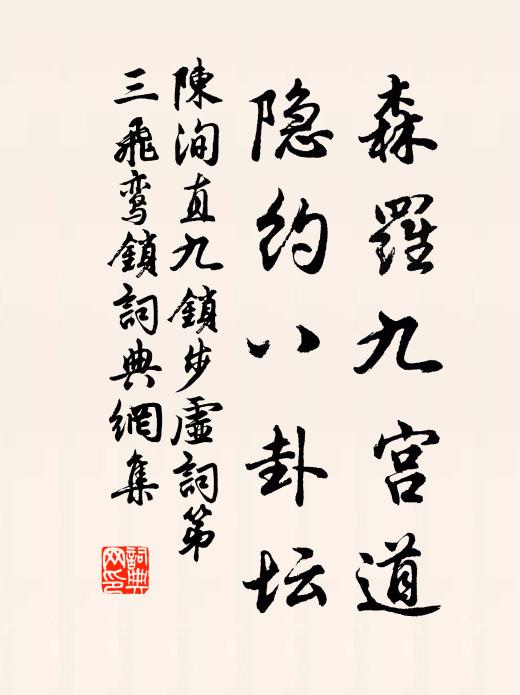 森羅九宫道
隐约八卦坛
陳洵直九鎖步虛詞第
三飛鸾鎖詞典網集
詞典网印